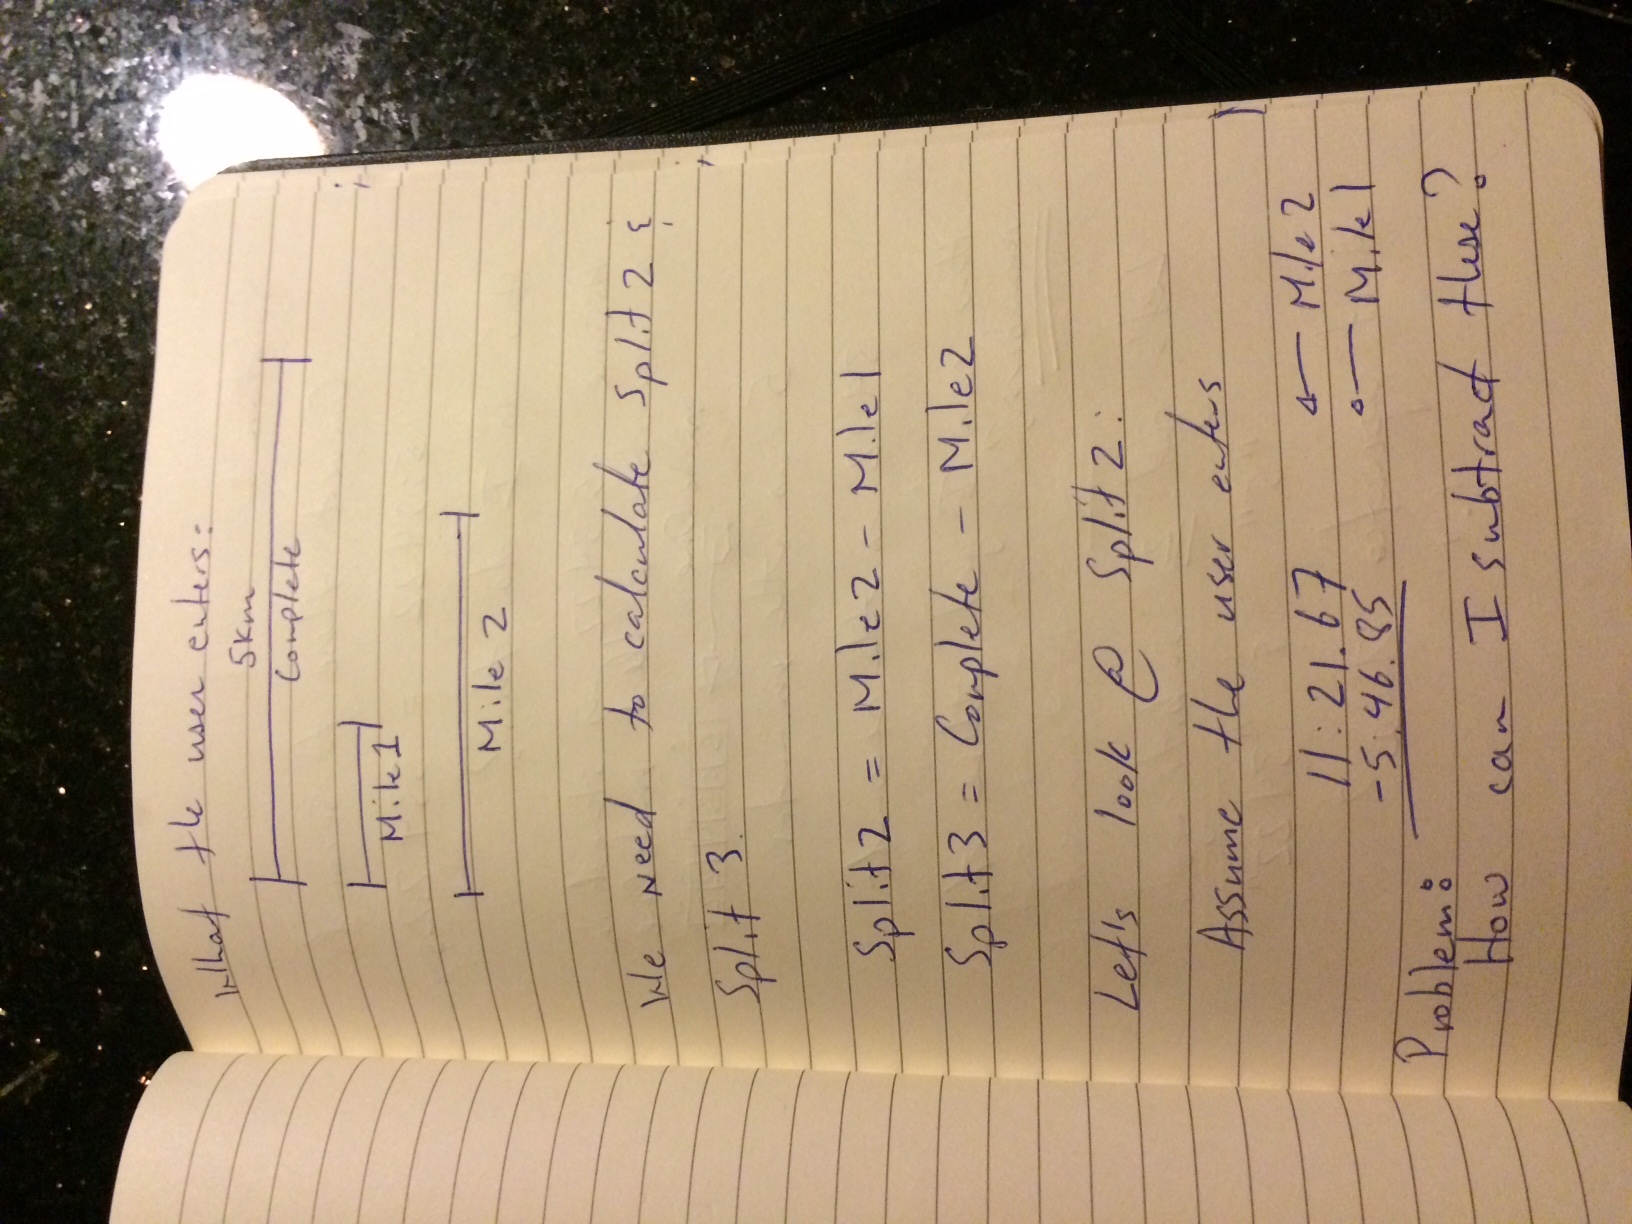 What the user enters:
5km
Complete
Mile 1
Mile 2
We need to calculate Split 2 &
Split 3.
Split2 = Mile2 - Mile1
Split3 = Complete - Mile2
Let's look @ Split2:
Assume the user enters
11:21.67 ← Mile2
-5:46.85 ← Mile1
Problem:
How can I subtract these?